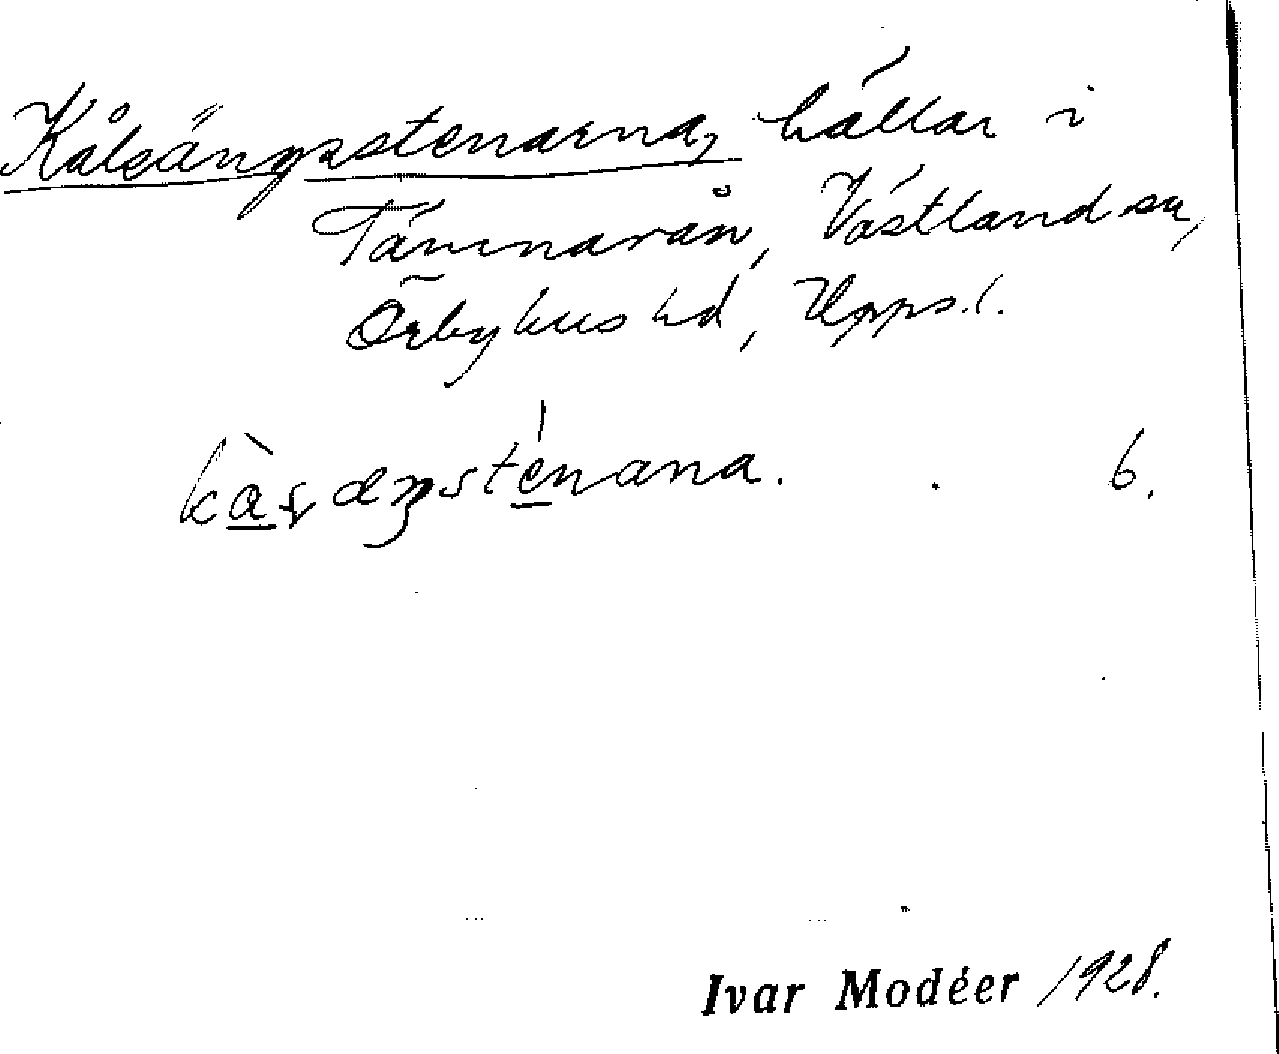 Kålsängsstenarna, hällar i
Tämnarån, Västlands sn,
Örbyhus hd, Upps. l.
6.
Ivar Modéer 1928.